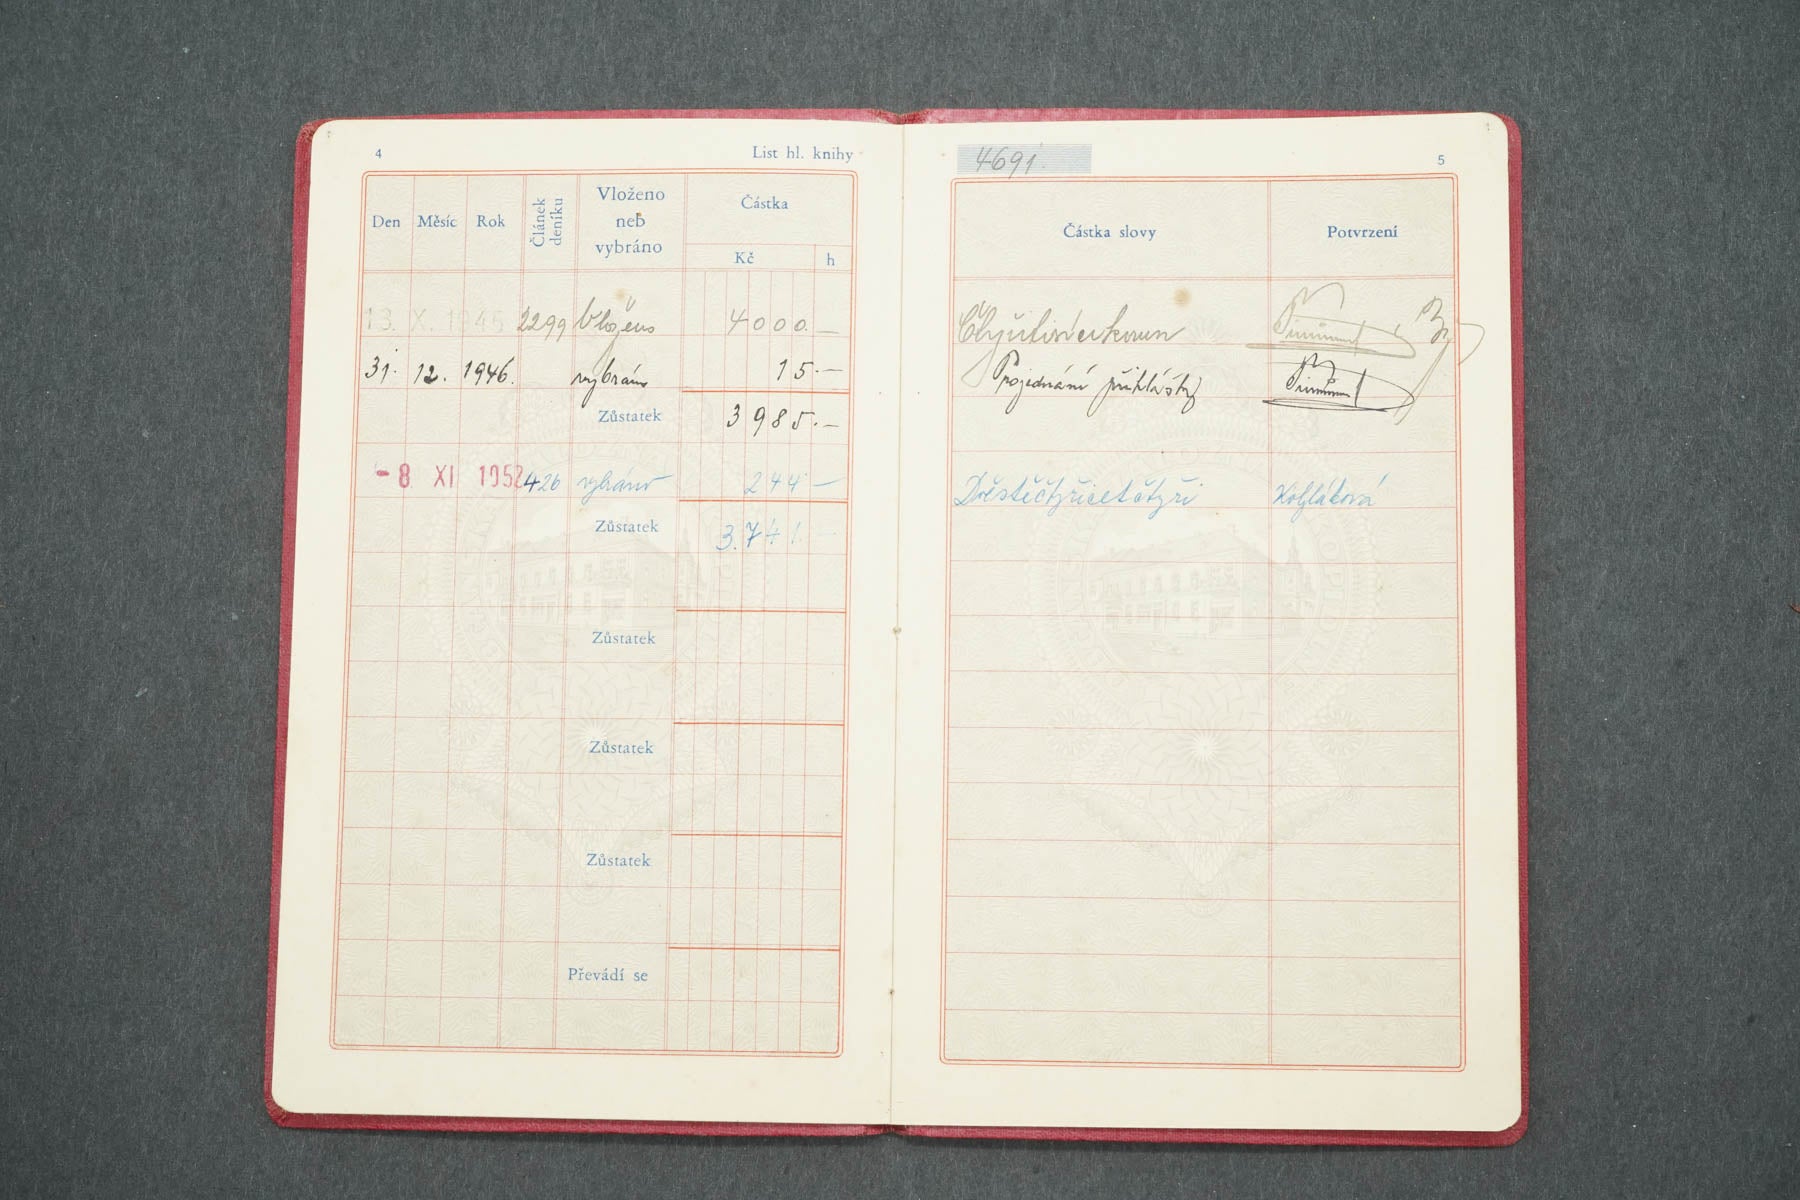 4 List hl. knihy
Den Měsíc Rok Článek deníku Vloženo neb vybráno Částka
Kč h
13. X. 1945 2299 Vloženo 4000.—
31. 12. 1946. vybráno 15.—
Zůstatek 3985.—
-8 XI 1952 426 vybráno 244.—
Zůstatek 3.741.—
Zůstatek
Zůstatek
Zůstatek
Převádí se
4691. 5
Částka slovy Potvrzení
Čtyřitisíckorun
Projednání přihlášky
Dvěstěčtyřicetčtyři